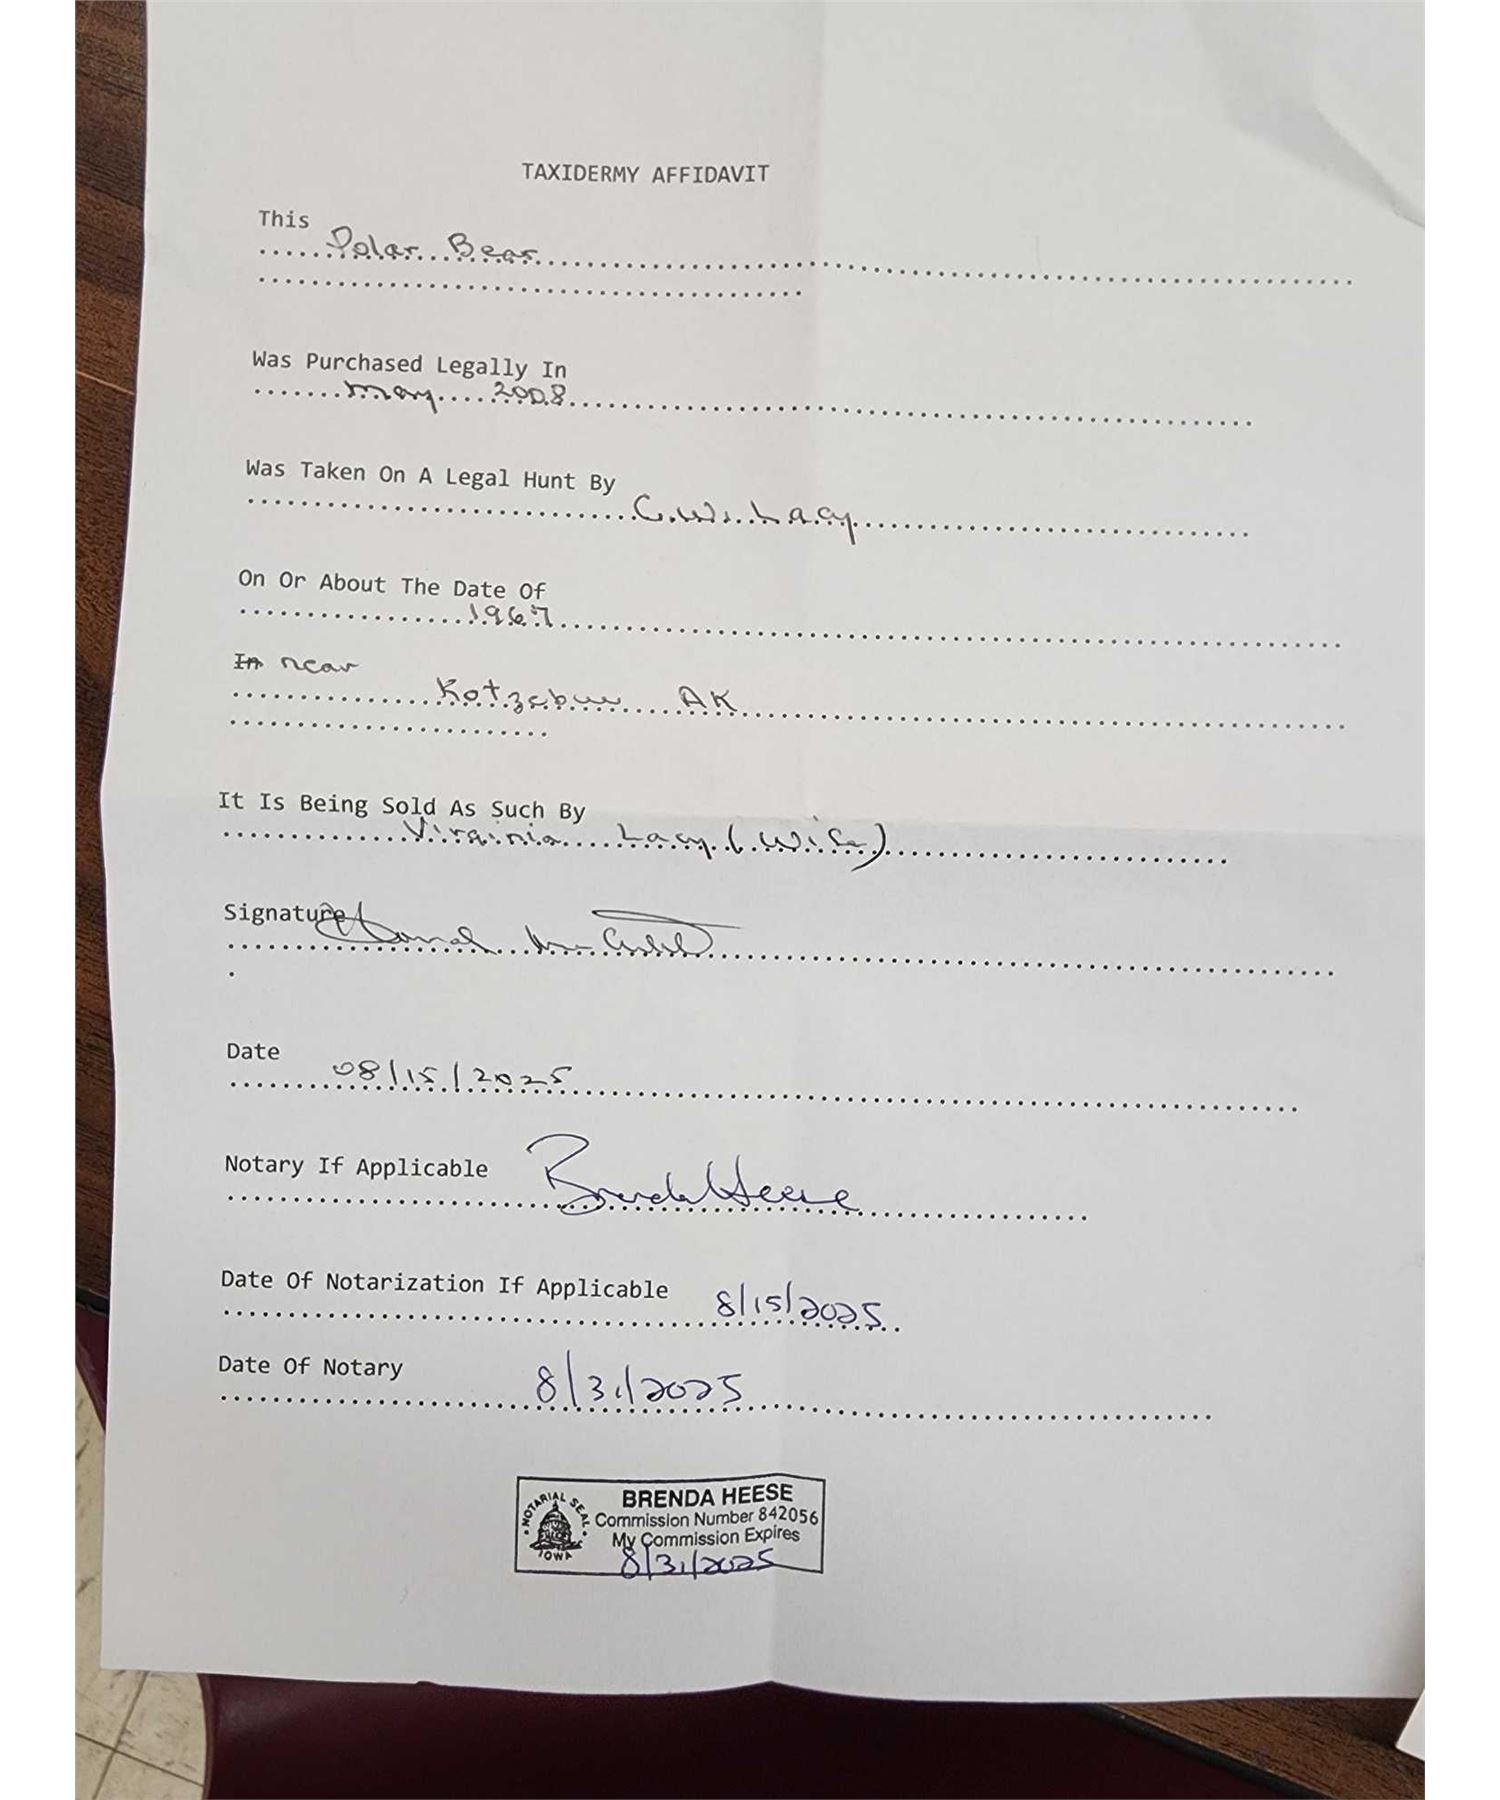 TAXIDERMY AFFIDAVIT
This
Polar Bear
Was Purchased Legally In
May 2008
Was Taken On A Legal Hunt By
C.W. Lacy
On Or About The Date Of
1967
In near
Kotzebue AK
It Is Being Sold As Such By
Virginia Lacy (wife)
Signature
Date
08/15/2025
Notary If Applicable
Brenda Heese
Date Of Notarization If Applicable
8/15/2025
Date Of Notary
8/31/2025
NOTARIAL SEAL
IOWA
BRENDA HEESE
Commission Number 842056
My Commission Expires
8/31/2025